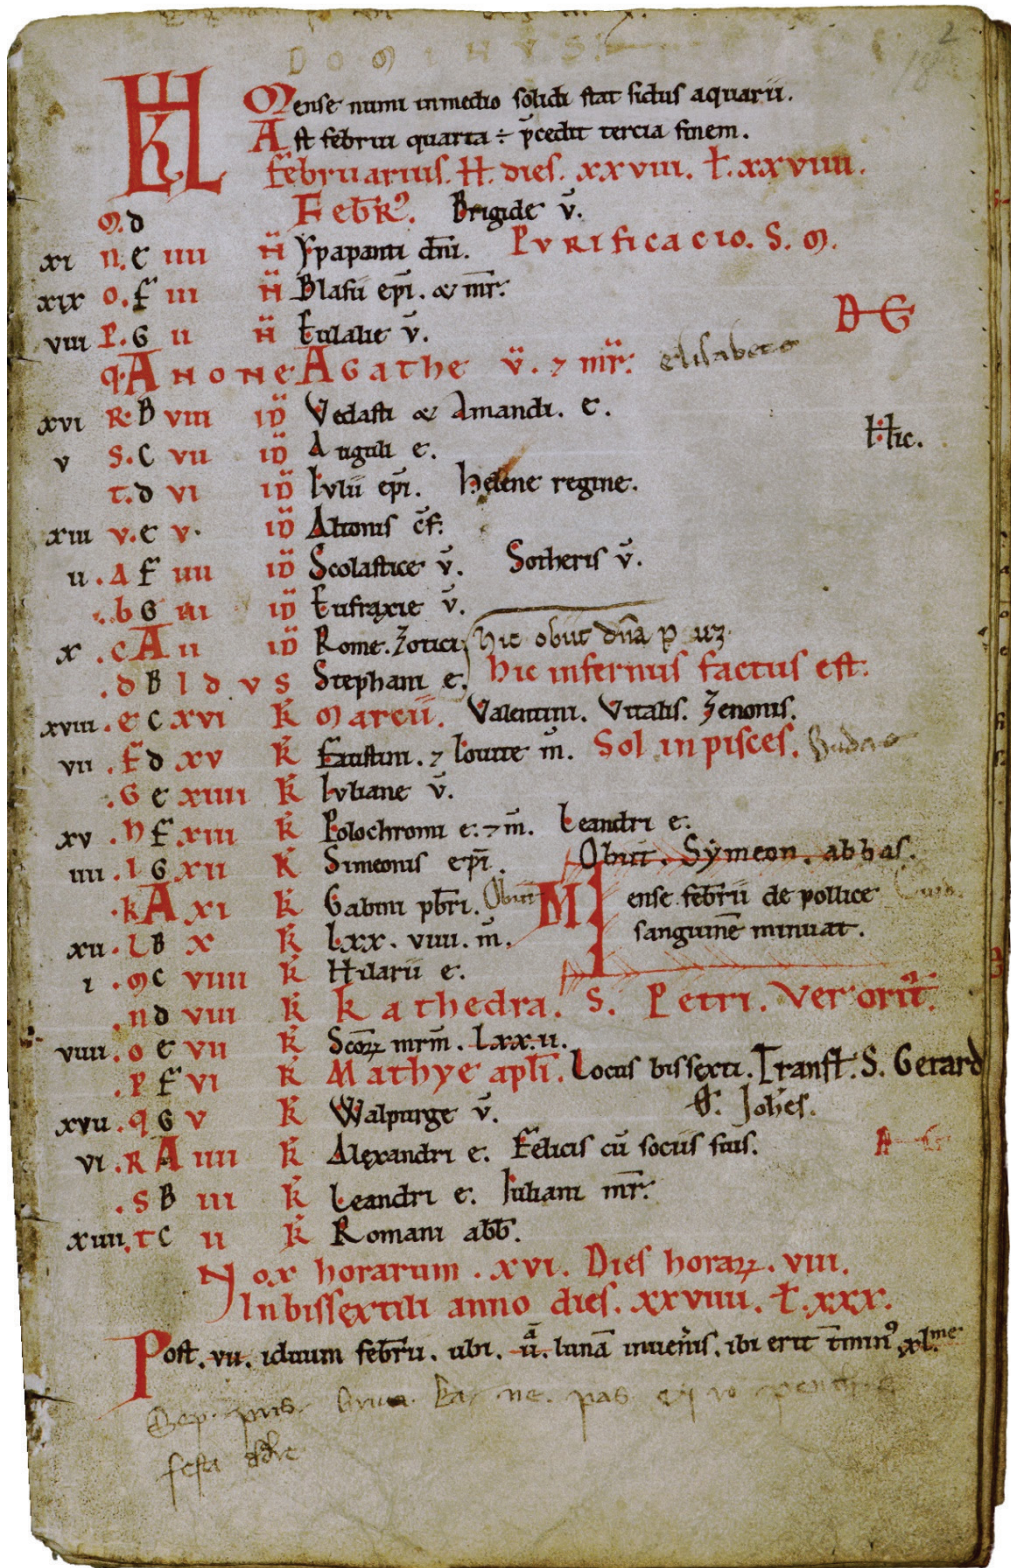 2
DOMINUS
KL Mense numi in medio solidi stat sidus aquarii.
Ast febrvi quarta ÷ p̄cedit tercia finem.
februarius. H̄. dies. xxviii. ł. xxviiii.
M. d Feb̄Rꝰ. Brigide v̄.
xi n. e iiii N̄ Ypapanti dn̄i. Purificacio. S. M.
xix o. f iii N̄ Blasii ep̄i. & mr̄.
viii p. G ii N̄ Eulalie v̄.
q A NONE Agathe v̄. ⁊ mr̄. elisabete
D G
xvi R. B viii id̄ Vedasti & Amandi. e.
v S. C vii id̄ Auguli e. Hic.
T. d vi id̄ Iulii ep̄i. Helene regine.
xiii v. e v. id̄ Altonis c̄f.
ii. A f iiii id̄ Scolastice v̄. Sotheris v̄.
. b G iii id̄ Eufraxie v̄.
x . c A ii id̄ Rome. Zotici hic obiit dn̄a
. d B IDVS Stephani e. hic infernus factus est.
xviii . e C xvi k̄ Marcii. Valentini. Vitalis. Zenonis.
vii . f d xv k̄ Faustini. ⁊ Iouite m̄. Sol in pisces.
. G e xiiii k̄ Iuliane v̄.
xv . h f xiii k̄ Polochronii e. ⁊ m̄. Leandri e.
iiii . I G xii k̄ Simeonis ep̄i. Obiit. Sẏmeon. abbas.
. k A xi k̄ Gabini pb̄ri. Obiit Mense feb̄rii de pollice
xii . l B x k̄ Lxx. viiii. m̄. sanguinē minuat.
i . M C viiii k̄ Hilarii e.
. n d viii k̄ Kathedra. S. Petri. Ver orit̄.
viiii . o e vii k̄ Scōꝝ mrm̄. Lxx.ii.
. P f vi k̄ Mathye apl̄i. Locus bissexti. Transł. S. Gerard
xvii . q G v k̄ Walpurge v̄. Joh̄es.
vi . R A iiii k̄ Alexandri e. Felicis cū sociis suis.
. S B iii k̄ Leandri e. Iuliani mr̄.
xiiii . T C ii k̄ Romani abb̄.
Nox horarum. xvi. Dies horaꝝ. viii.
In bissextili anno dies. xxviiii. ł. xxx.
Post. vii. iduum feb̄rii. ubi. ii. lunā inueīs. ibi erit t̄minꝰ xl.me
festa